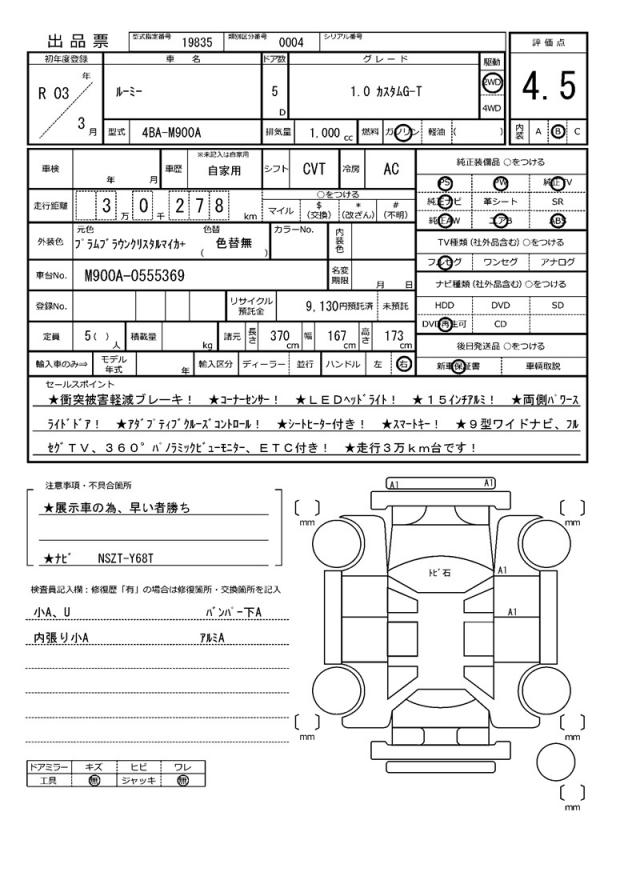 出品票 型式指定番号 19835 類別区分番号 0004 シリアル番号
初年度登録 車名 ドア数 グレード 駆動 評価点
R 03 年 3 月 ルーミー 5 D 1.0 カスタムG-T 2WD 4WD 4.5
型式 4BA-M900A 排気量 1.000 cc 燃料 ガソリン 軽油 ( ) 内装 A B C
車検 年 月 車歴 ※未記入は自家用 自家用 シフト CVT 冷房 AC 純正装備品 ○をつける
PS PW 純正TV
走行距離 3 万 0 千 2 7 8 km ○をつける マイル $(交換) *(改ざん) #(不明) 純正ナビ 革シート SR
純正AW エアB ABS
外装色 元色 プラムブラウンクリスタルマイカ+ 色替 ( 色替無 ) カラーNo. 内装色 TV種類 (社外品含む) ○をつける
フルセグ ワンセグ アナログ
車台No. M900A-0555369 名変期限 月 日 ナビ種類 (社外品含む) ○をつける
登録No. リサイクル預託金 9,130円預託済 未預託 HDD DVD SD
DVD再生可 CD
定員 5( ) 人 積載量 kg 諸元 長さ 370 cm 幅 167 cm 高さ 173 cm 後日発送品 ○をつける
輸入車のみ⇒ モデル年式 年 輸入区分 ディーラー 並行 ハンドル 左 右 新車保証書 車輌取説
セールスポイント
★衝突被害軽減ブレーキ! ★コーナーセンサー! ★LEDヘッドライト! ★15インチアルミ! ★両側パワース
ライドドア! ★アダプティブクルーズコントロール! ★シートヒーター付き! ★スマートキー! ★9型ワイドナビ、フル
セグTV、360°パノラミックビューモニター、ETC付き! ★走行3万km台です!
注意事項・不具合箇所
★展示車の為、早い者勝ち
★ナビ NSZT-Y68T
検査員記入欄：修復歴「有」の場合は修復箇所・交換箇所を記入
小A、U バンパー下A
内張り小A アルミA
ドアミラー キズ ヒビ ワレ
工具 無 ジャッキ 無
A1 A1
[ ] mm [ ] mm
トビ石 A1
A1
[ ] mm [ ] mm
[ ] mm